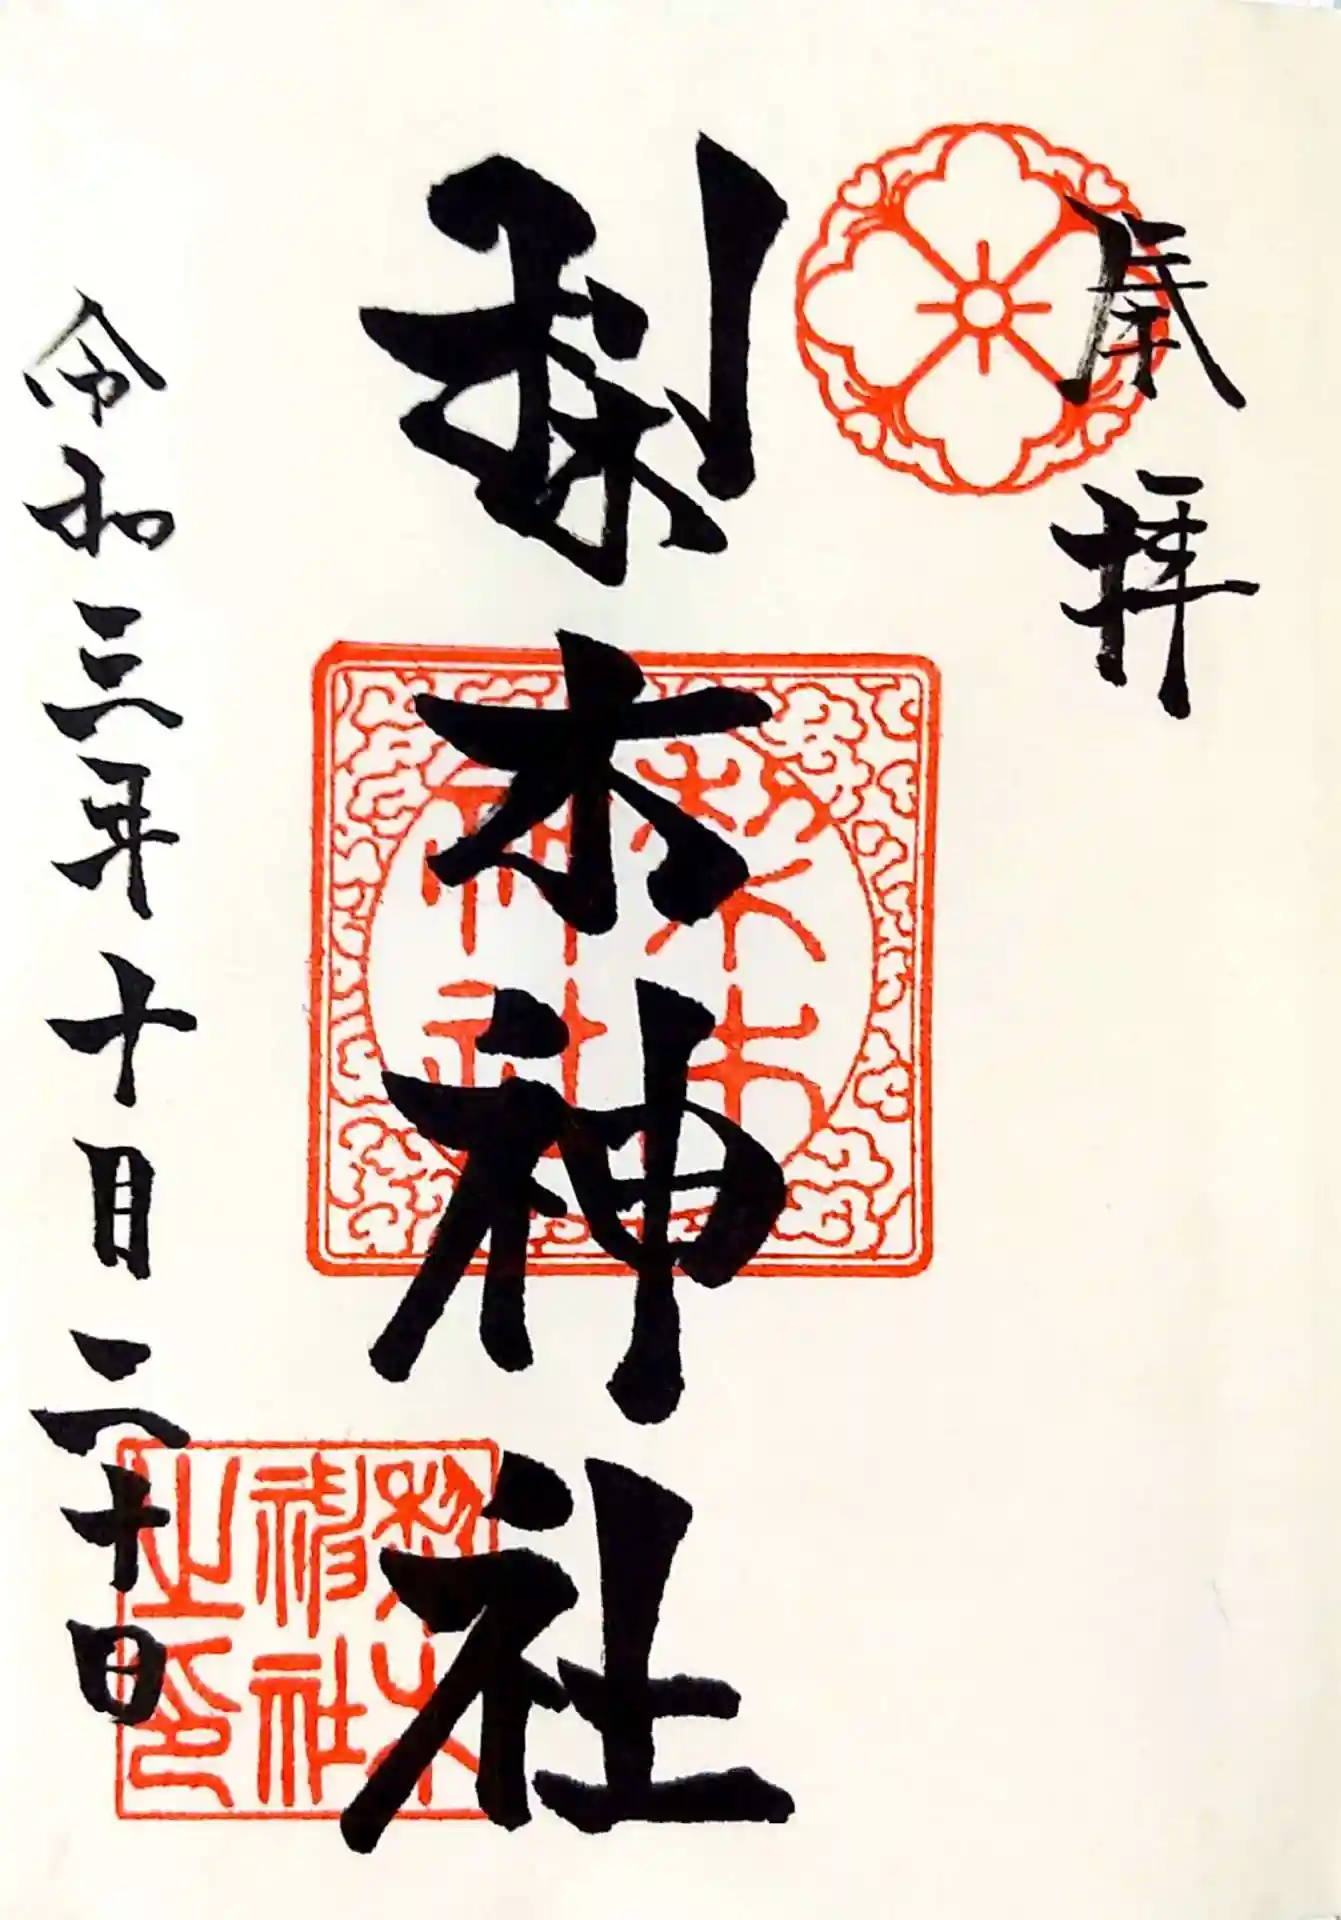 奉拝
梨木神社
梨木
神社
令和三年十月二十日
梨木
神社
之印